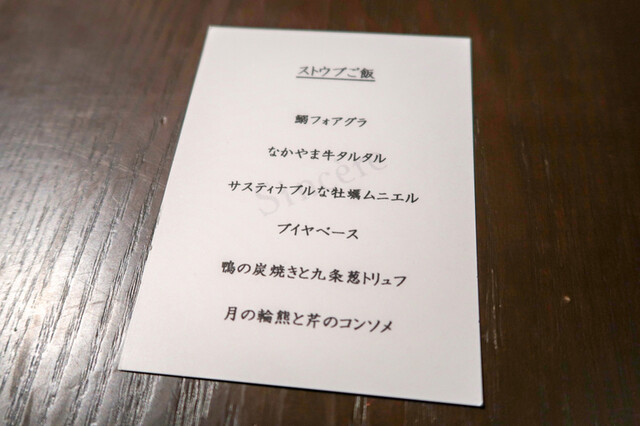 ストウブご飯
鯛フォアグラ
なかやま牛タルタル
サスティナブルな牡蠣ムニエル
Sincere
ブイヤベース
鴨の炭焼きと九条葱トリュフ
月の輪熊と芹のコンソメ